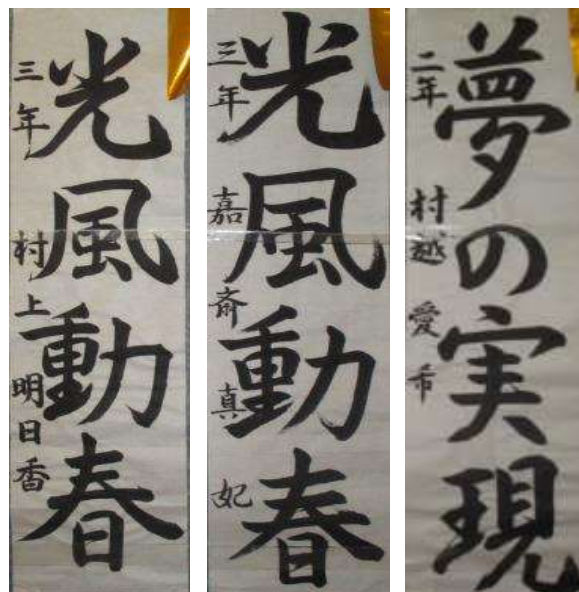 光風動春
三年 村上明日香
光風動春
三年 嘉斎真妃
夢の実現
二年 村越愛希